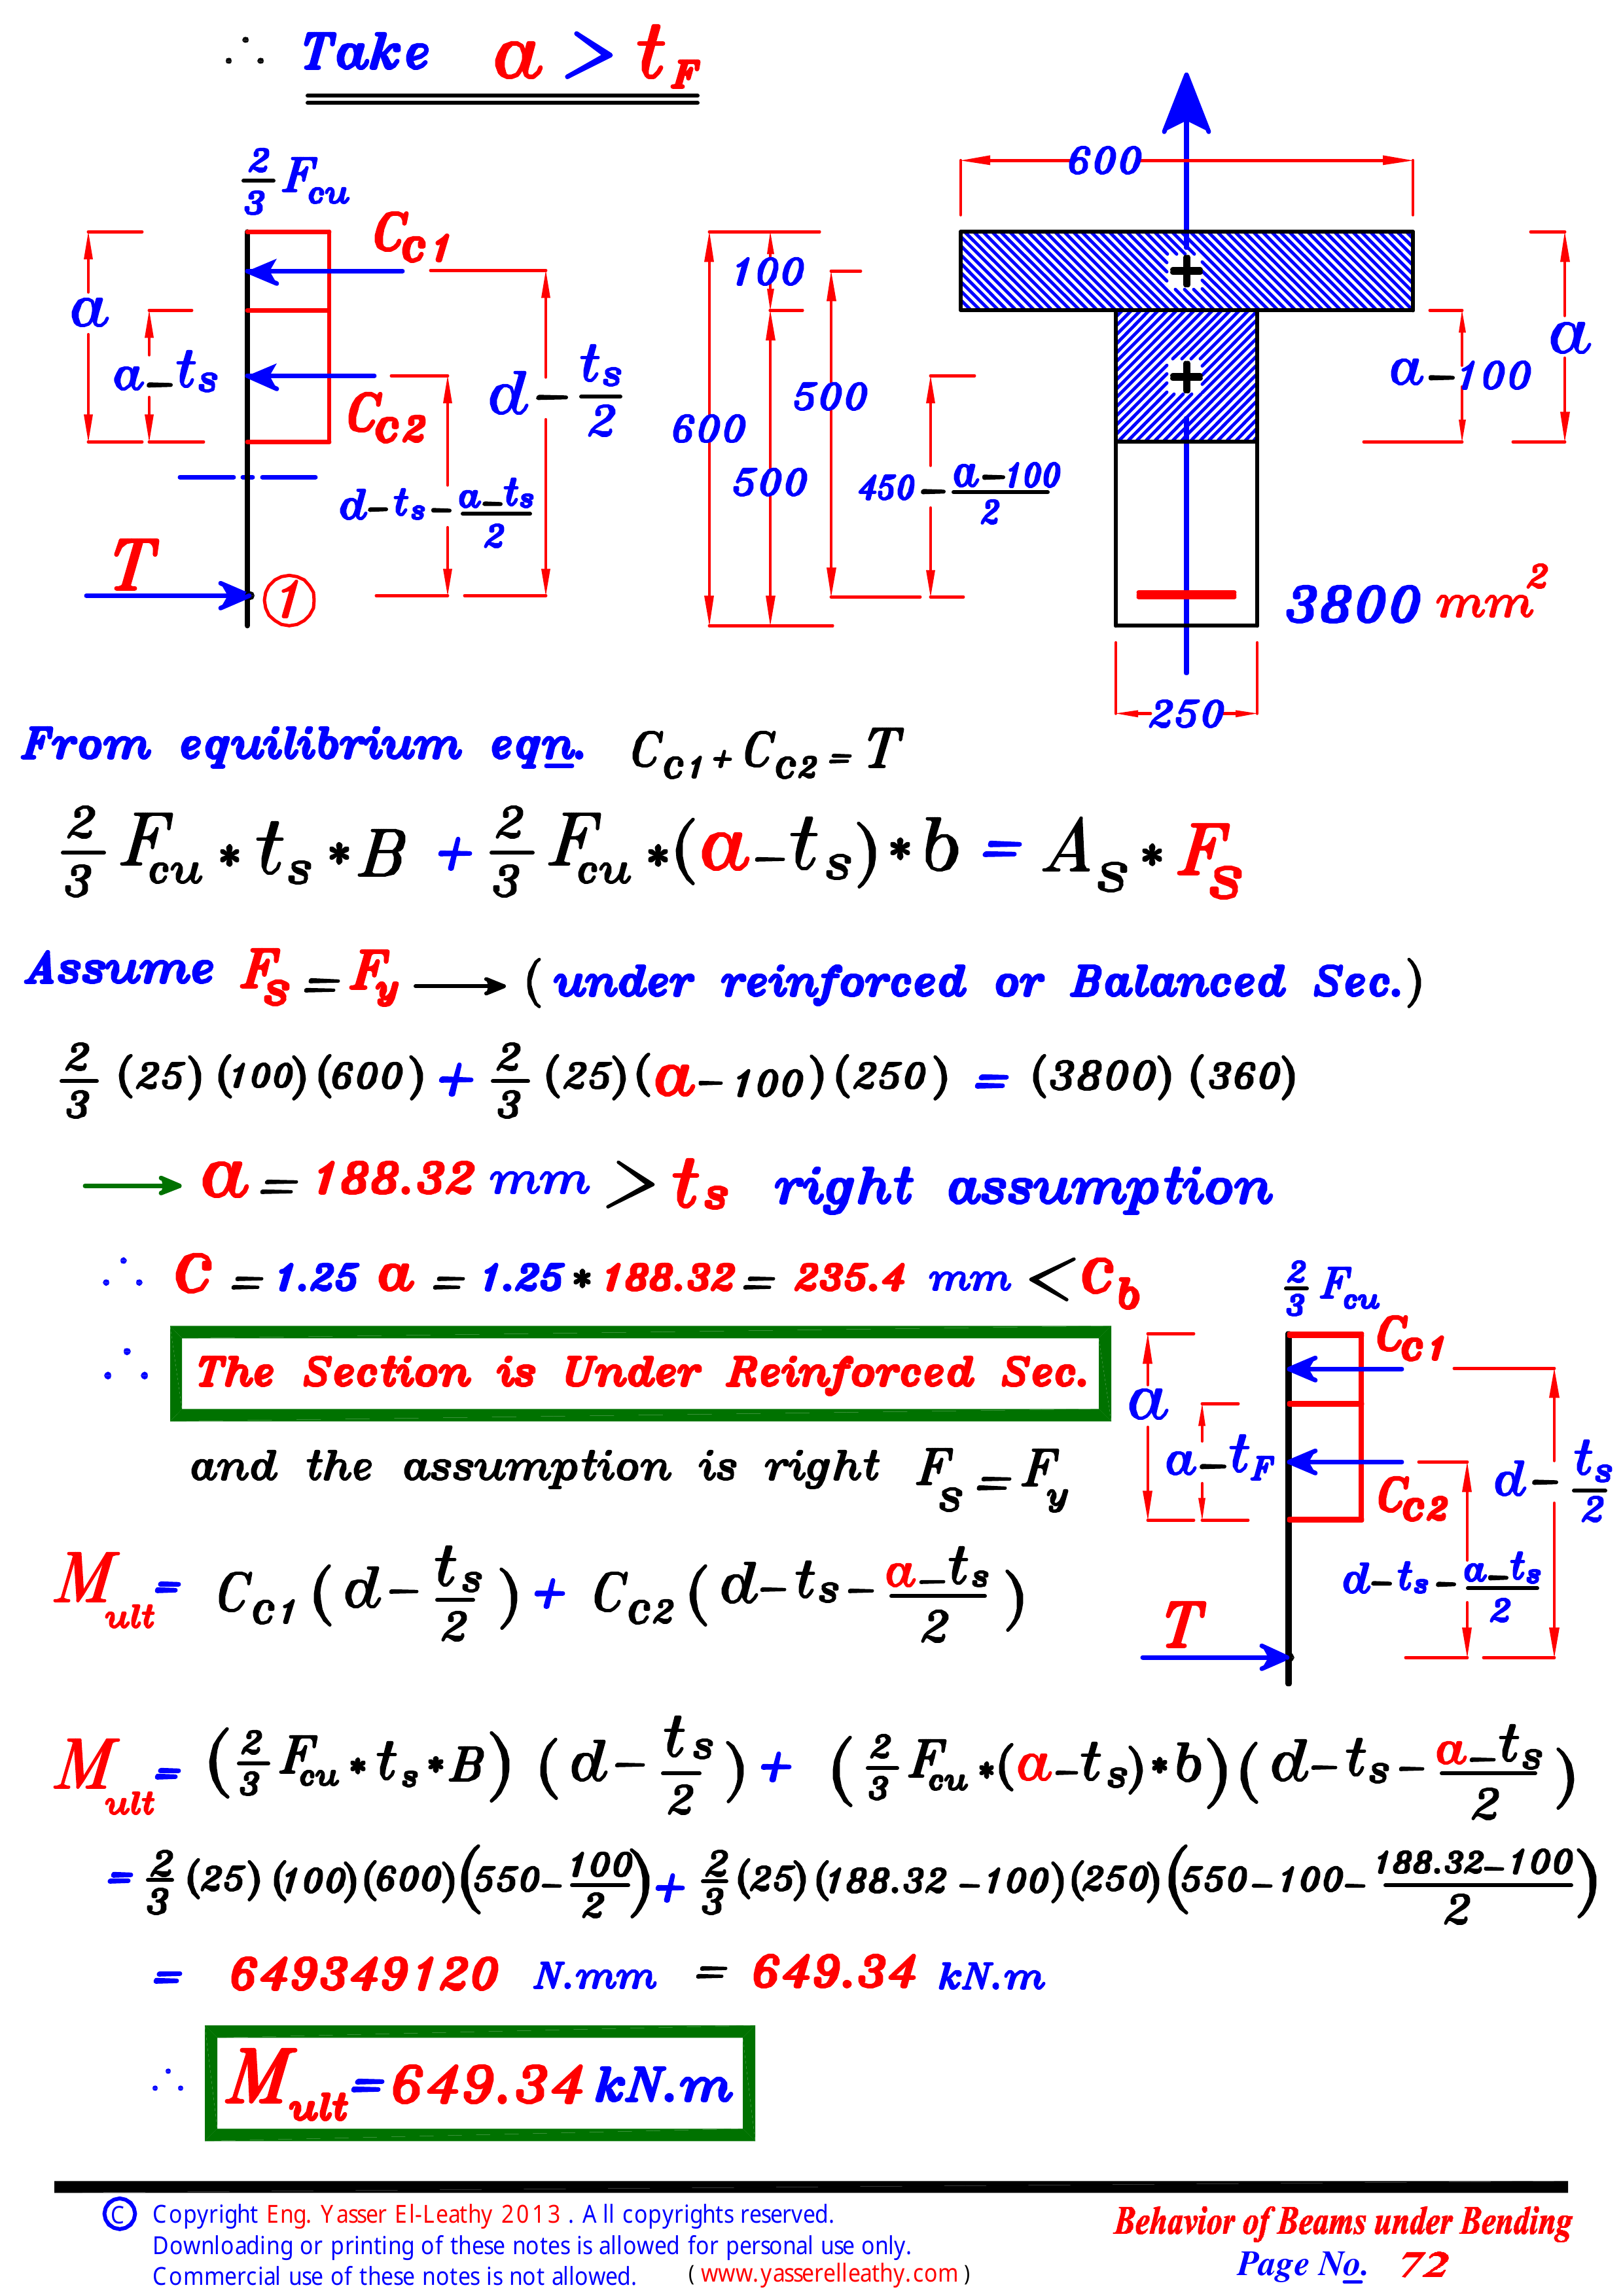 ∴ Take a > t_F
2/3 F_cu
C_c1
a
a-t_s
C_c2
d - t_s/2
d-t_s-(a-t_s)/2
T
1
600
100
500
600
500
450-(a-100)/2
a-100
a
3800 mm²
250
From equilibrium eqn. C_c1 + C_c2 = T
2/3 F_cu * t_s * B + 2/3 F_cu * (a-t_s) * b = A_s * F_s
Assume F_s = F_y → (under reinforced or Balanced Sec.)
2/3 (25)(100)(600) + 2/3 (25)(a-100)(250) = (3800)(360)
→ a = 188.32 mm > t_s right assumption
∴ C = 1.25 a = 1.25 * 188.32 = 235.4 mm < C_b
∴ The Section is Under Reinforced Sec.
and the assumption is right F_s = F_y
2/3 F_cu
C_c1
a
a-t_F
C_c2
d - t_s/2
d-t_s-(a-t_s)/2
T
M_ult = C_c1 (d - t_s/2) + C_c2 (d-t_s-(a-t_s)/2)
M_ult = (2/3 F_cu * t_s * B) (d - t_s/2) + (2/3 F_cu * (a-t_s) * b)(d-t_s-(a-t_s)/2)
= 2/3 (25)(100)(600)(550-100/2) + 2/3 (25)(188.32-100)(250)(550-100-(188.32-100)/2)
= 649349120 N.mm = 649.34 kN.m
∴ M_ult = 649.34 kN.m
© Copyright Eng. Yasser El-Leathy 2013 . All copyrights reserved.
Downloading or printing of these notes is allowed for personal use only.
Commercial use of these notes is not allowed. ( www.yasserelleathy.com )
Behavior of Beams under Bending
Page No. 72